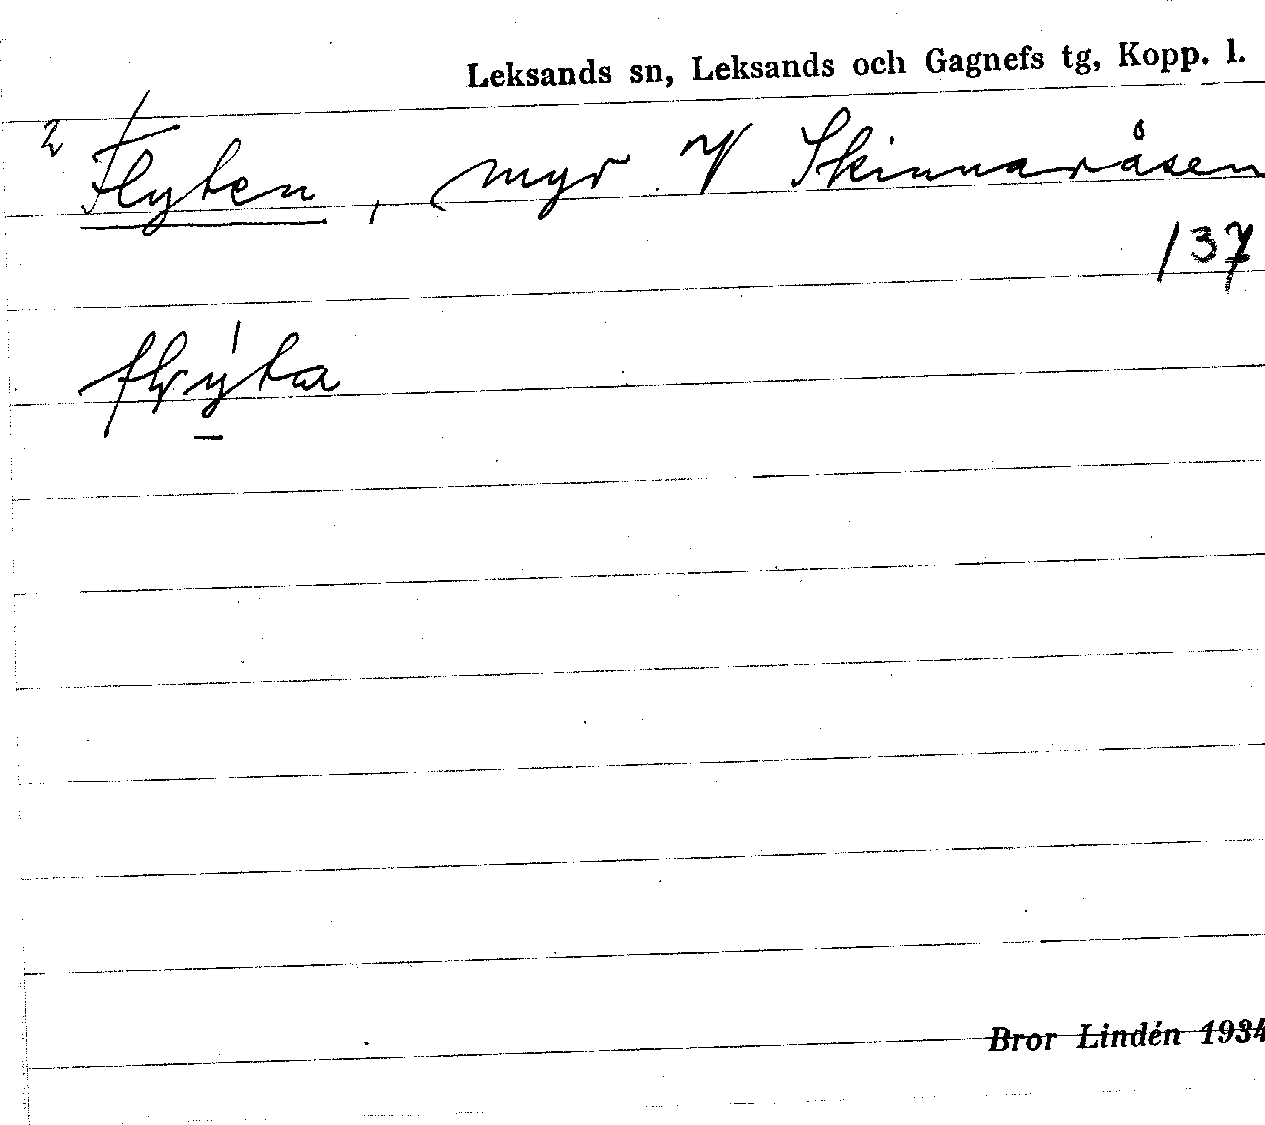 Leksands sn, Leksands och Gagnefs tg, Kopp. l.
2 Flyten, myr V Skinnaråsen
137
Bror Lindén 1934